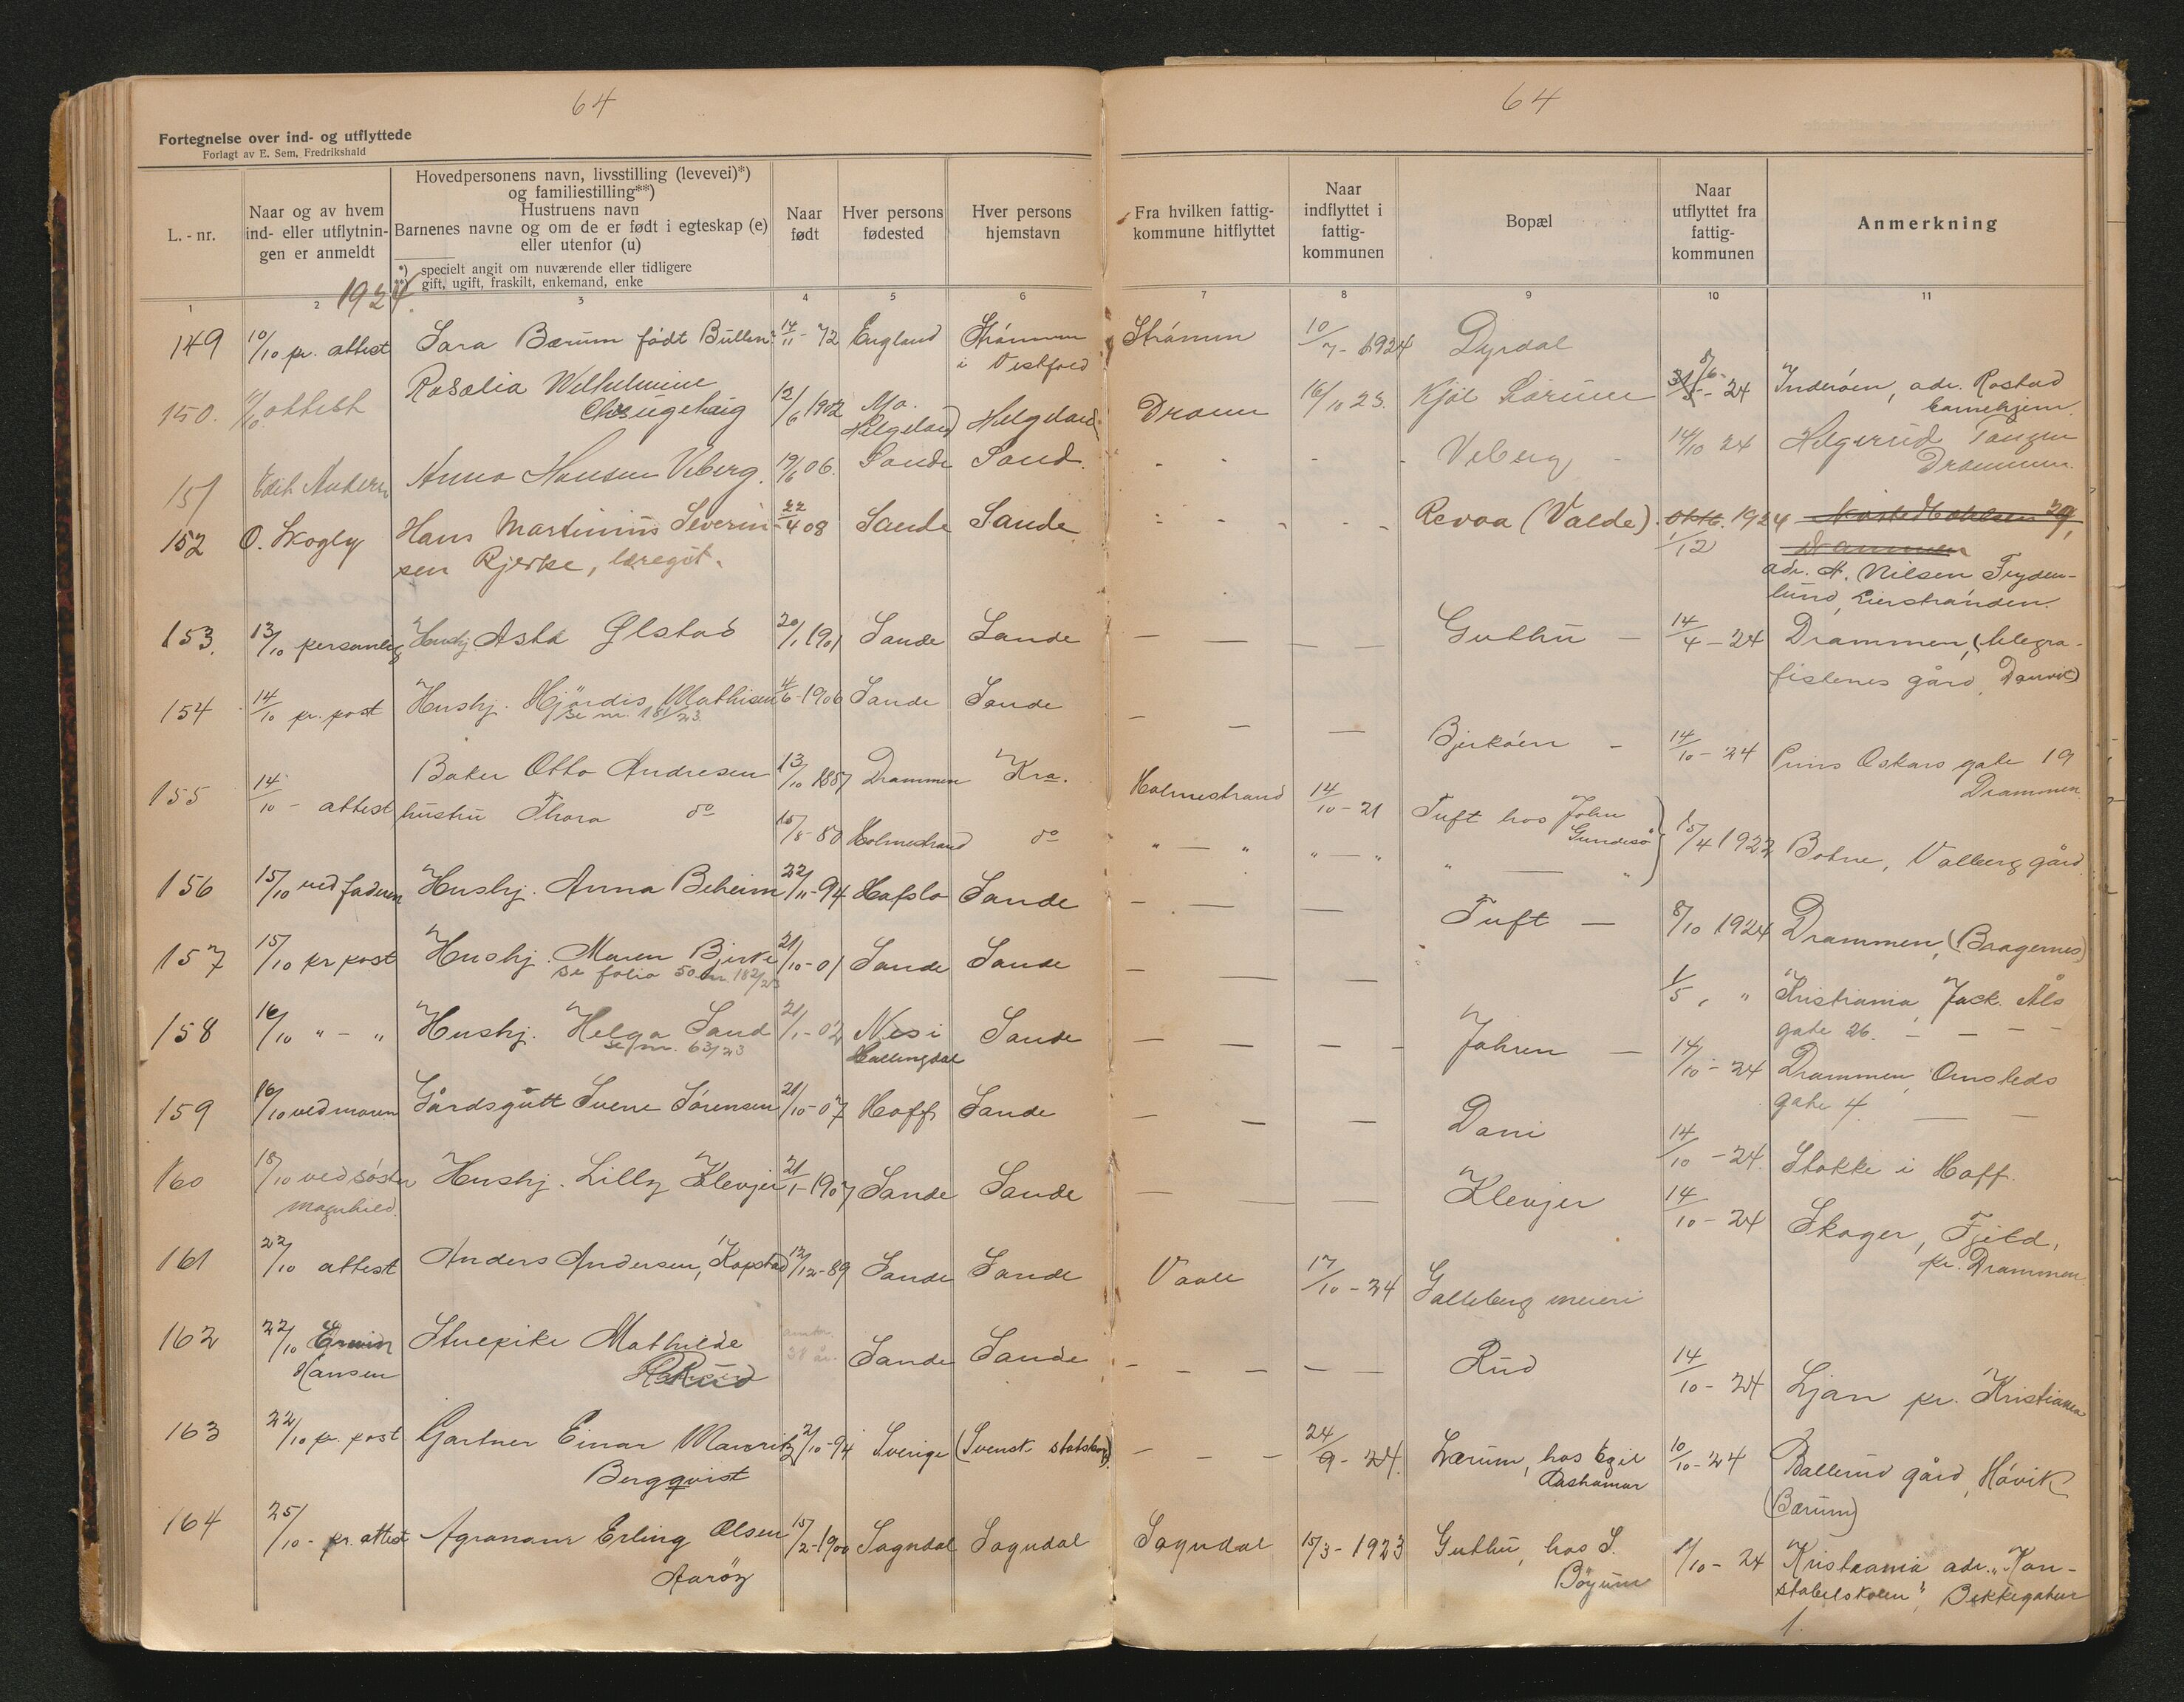 64
64
Fortegnelse over ind- og utflyttede
Forlagt av E. Sem, Fredrikshald
L.-nr.
Naar og av hvem ind- eller utflytningen er anmeldt
Hovedpersonens navn, livsstilling (levevei)*)
og familiestilling**)
Hustruens navn
Barnenes navne og om de er født i egteskap (e)
eller utenfor (u)
*) specielt angit om nuværende eller tidligere
**) gift, ugift, fraskilt, enkemand, enke
Naar født
Hver persons fødested
Hver persons hjemstavn
Fra hvilken fattigkommune hitflyttet
Naar indflyttet i fattigkommunen
Bopæl
Naar utflyttet fra fattigkommunen
Anmerkning
1 2 3 4 5 6 7 8 9 10 11
1924
149 10/10 pr. attest Sara Bærum født Bullen 14/11-72 England Strømm i Vestfold Strømm 10/7-1924 Dyrdal
150. attest Rosalia Wilhelmine 12/6 1902 Mo Helgeland Helgeland Dramm 16/10 23. Kjøl 24 Inderøen, adr. Rostad barnehjem.
151 Anna Hansen Veberg. 19/6 06. Sande Sand. Veberg 14/10 24 Helgerud Tangen Drammen.
152 O. Skogly Hans Martinius Severinsen Bjerke, læregut. 22/4 08 Sande Sande Revaa (Valde). 1924 1/12 Drammen
adr. H. Nilsen Frydenlund, Lierstranden.
153. 13/10 personlig Hushj Asta Ølstad 20/1 1901 Sande Sande — — — — Guthu — 14/4-24 Drammen, (telegrafistenes gård, Danvik)
154 14/10 pr. post Hushj. Hjørdis Mathisen 4/6-1906 Sande Sande — — — Bjerkøen - 14/10-24 Prins Oskars gate 19 Drammen
se nr. 181/23.
155 14/10 - attest Baker Otto Andresen 13/10 1887 Drammen Kra. Holmestrand 14/10-21 Tuft hos John Gundesø 15/4 1922 Botne, Valberg gård.
hustru Thora do 15/8-80 Holmestrand do " — " " — " " — "
156 15/10 ved faderen Hushj. Anna Beheim 22/11-94 Hafslo Sande — — — Tuft — 8/10 1924 Drammen, (Bragernes)
157 15/10 pr post Hushj. Maren Bjerke 21/10-01 Sande Sande — — — 1/5 , " Kristiania, Jack. Åls gate 26. — — —
se folio 50 nr. 182/23
158 16/10 " - " Hushj. Helga Sand 21/1-02 Nes i Hallingdal Sande — — — - Jahren — 14/10-24 Drammen, Ornsteds gate 4. — —
se nr. 63/23
159 16/10 ved moren Gårdsgutt Svene Sørensen 21/10-07 Hoff Sande — — — Dani 14/10-24. Stokke i Hoff.
160 18/10 ved søster Magnhild. Hushj. Lilly Klevjer 21/1-1907 Sande Sande — — — Klevjer 14/10-24 Skoger, Fjeld, pr. Drammen.
161 22/10 attest Anders Andersen, Kopstad 12/12-89 Sande Sande Vaale 17/10-24 Galleberg meieri
162 22/10 Erwin Hansen Stuepike Mathilde Rud Sande Sande - - - — — Rud 14/10-24 Ljan pr. Kristiania
163 22/10 pr. post Gartner Einar Mauritz Bergqvist 2/10-94 Sverige (Svensk statsborg.) — - - 24/9-24. Lærum, hos Egil Aashamar 10/10-24 Ballerud gård, Høvik (Bærum)
164 25/10- pr. attest Agronom Erling Olsen Aarøy 15/2-1900 Sogndal Sogndal Sogndal 15/3-1923 Guthu, hos S. Bøyum /10-24 Kristiania adr. "Konstabelskolen", Bekkegaten 1.